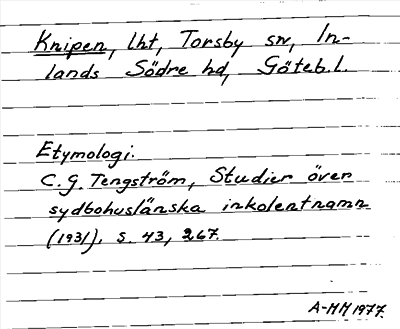 Knipen, lht, Torsby sn, In-
lands Södre hd, Göteb.l.
Etymologi.
C.G. Tengström, Studier över
sydbohuslänska inkolentnamn
(1931), s. 43, 267.
A-MM 1977.